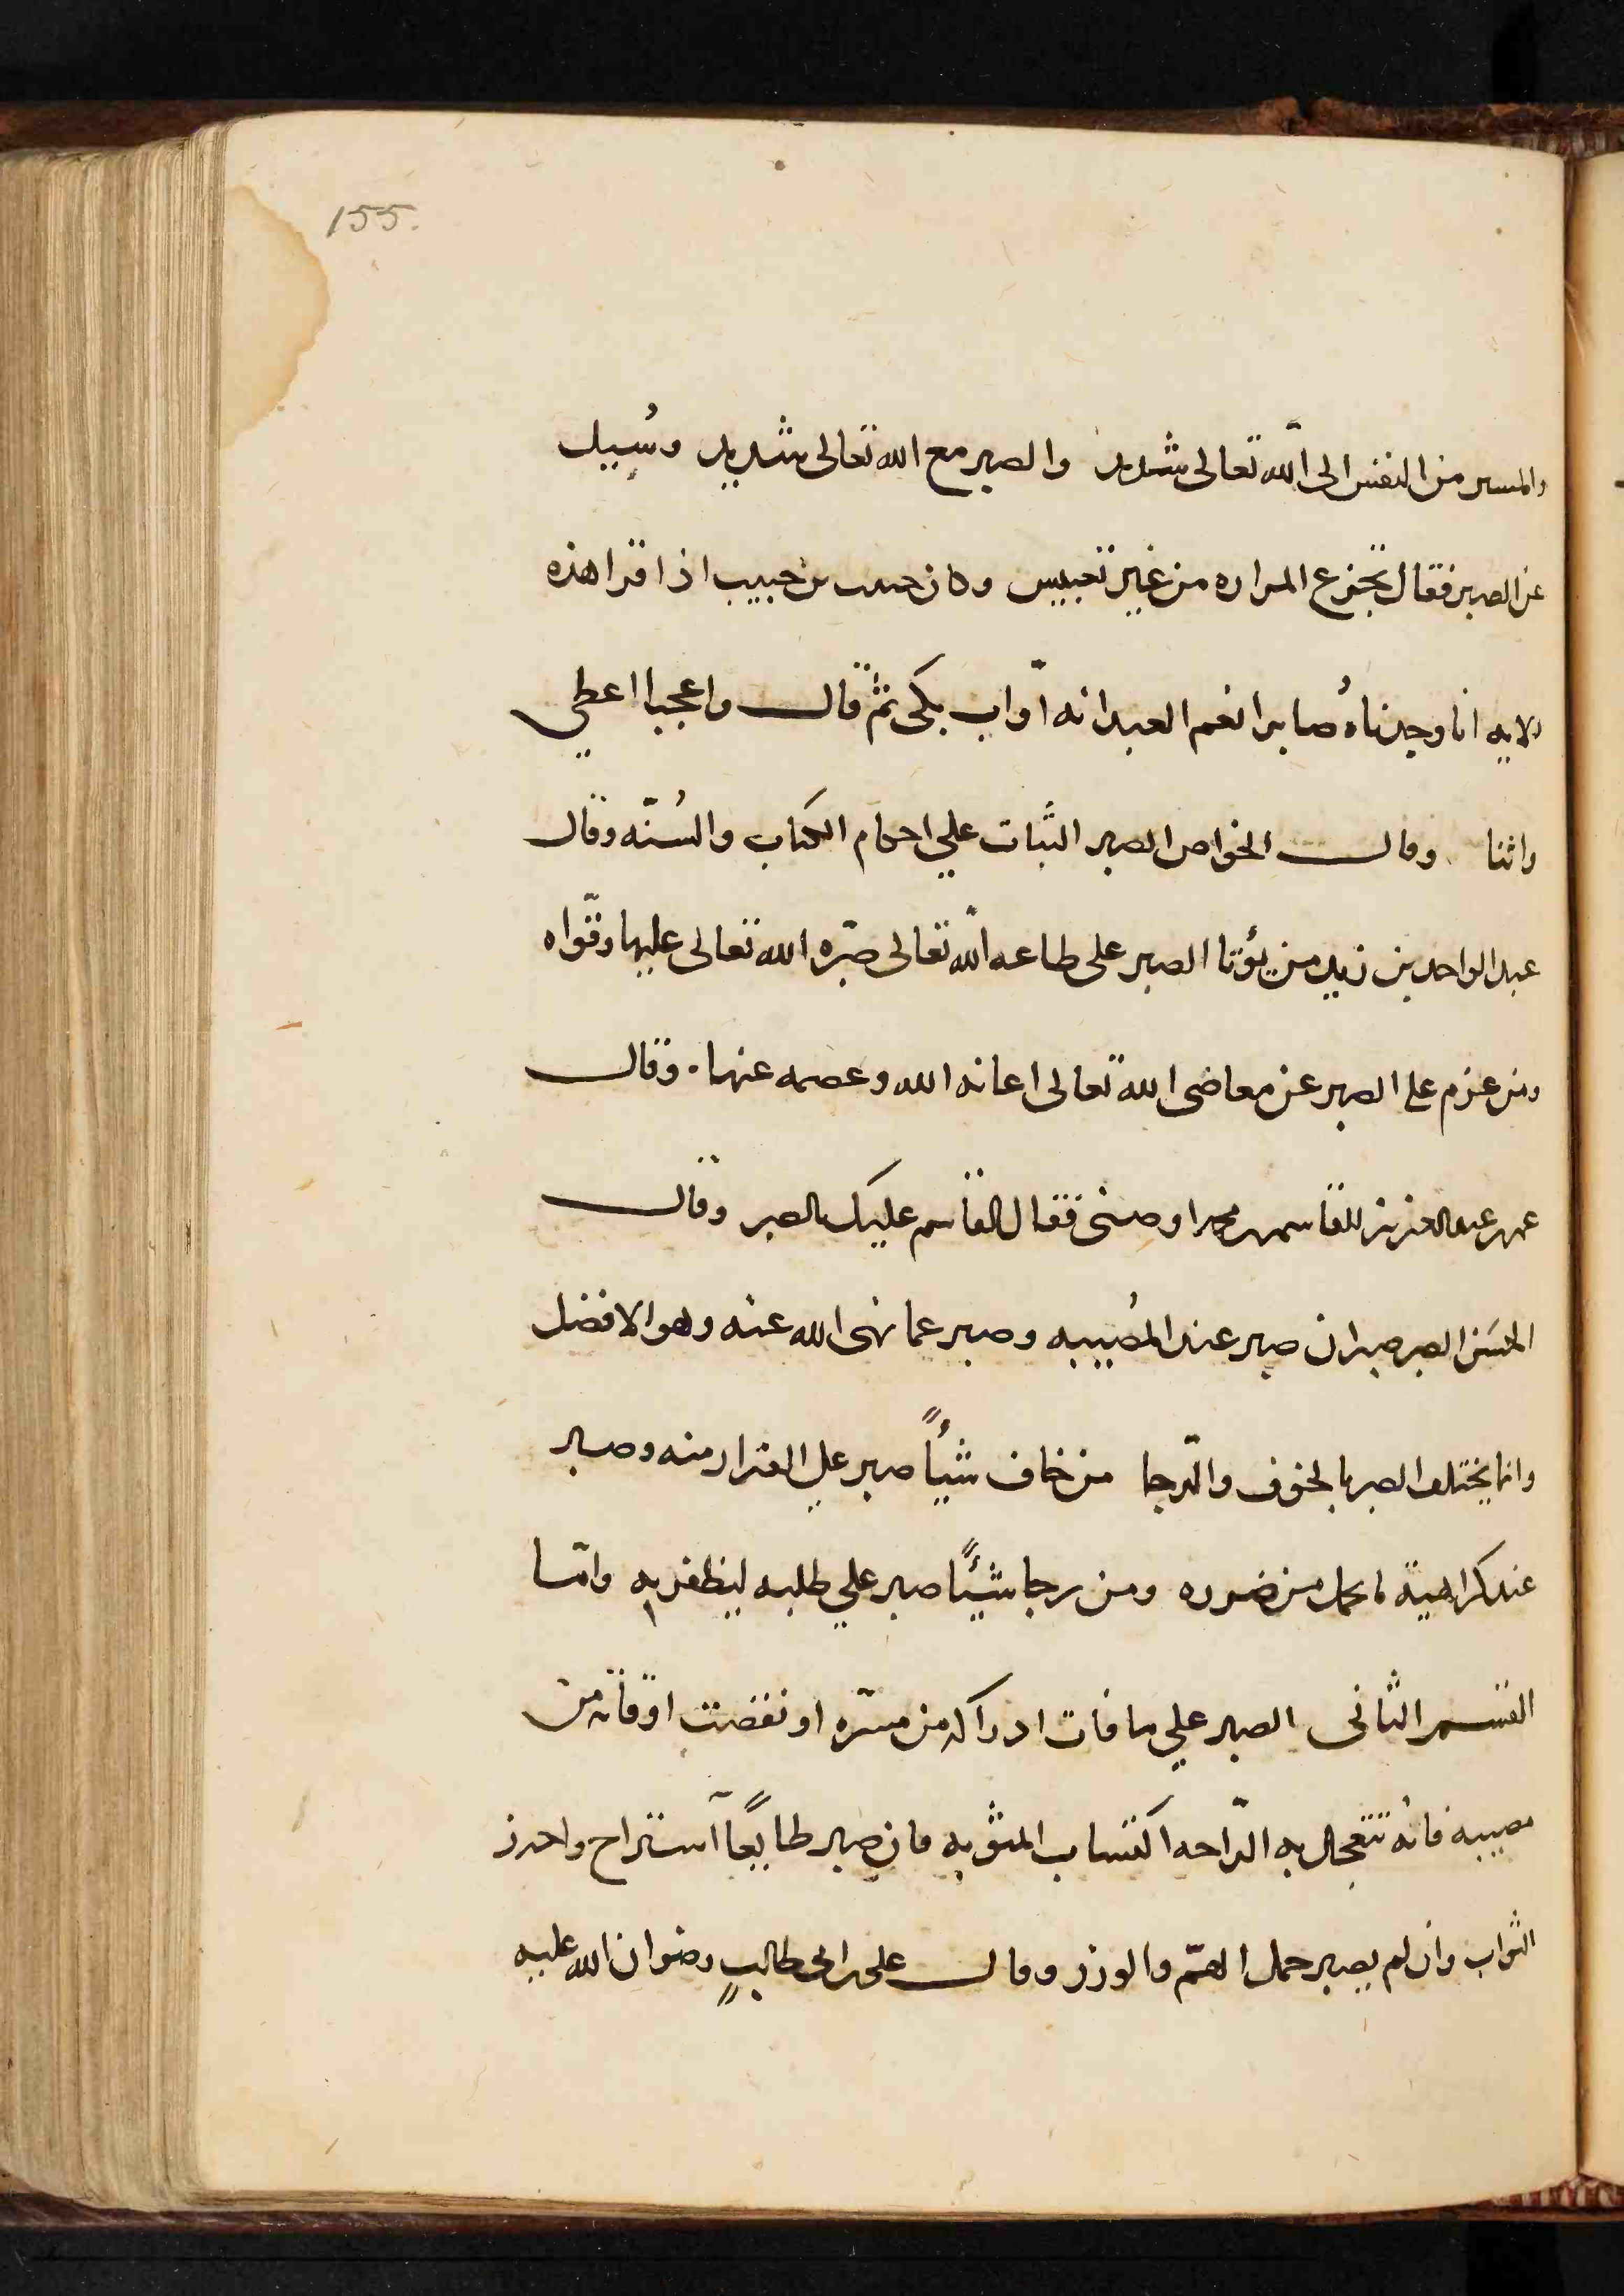 155.
والمسير من النفس الى الله تعالى شديد والصبر مع الله تعالى شديد وسُييل
عن الصبر فقال تجرع المراره من غير تعبيس وكان حبيب بن حبيب اذا قرا هذه
الايه انا وجدناهُ صابرا نعم العبد انه اوّاب بكى ثم قال واعجبا اعطي
واثنا وقال الخواص الصبر الثبات علي احكام الكتاب والسُنّه وقال
عبد الواحد بن زيد من يؤتا الصبر على طاعه اللّه تعالى صبّره الله تعالى عليها وقوّاه
ومن عزم على الصبر عن معاضى الله تعالى اعانه الله وعصمه عنها. وقال
عمر بن عبد العزيز للقاسم بن محمد اوصنى فقال القاسم عليك بالصبر وقال
الحسَن الصبر صبران صبر عند المُصيبه وصبر عما نهى الله عنه وهو الافضل
وانما يختلف الصبر بالخوف والرّجا من خاف شيئاً صبر علي الفرار منه وصبر
عند كراهية ما يحمل من ضرره ومن رجا شيئًا صبر علي طلبه ليظفر به وامّا
القسم الثانى الصبر علي ما فات ادراكه من مسرّه او نقضت اوقاته من
مصيبه فانه تتعجل به الرّاحه اكتساب المثوبه فان صبر طايعًا آستراح واحرز
الثواب وان لم يصبر حمل الهمّ والوزر وقال على بن ابى طالبٍ رضوان الله عليه